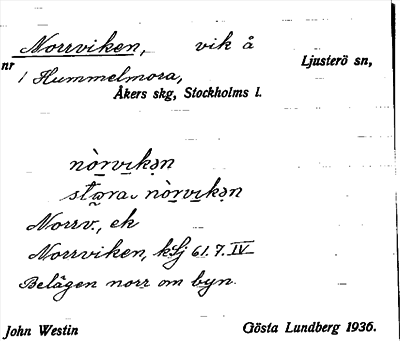 Norrviken, vik å Ljusterö sn,
nr 1 Hummelmora,
Åkers skg, Stockholms l.
nòrvikən
stora nòrvikən
Norrv., ek
Norrviken, kSj 61.7.IV
Belägen norr om byn.
John Westin Gösta Lundberg 1936.